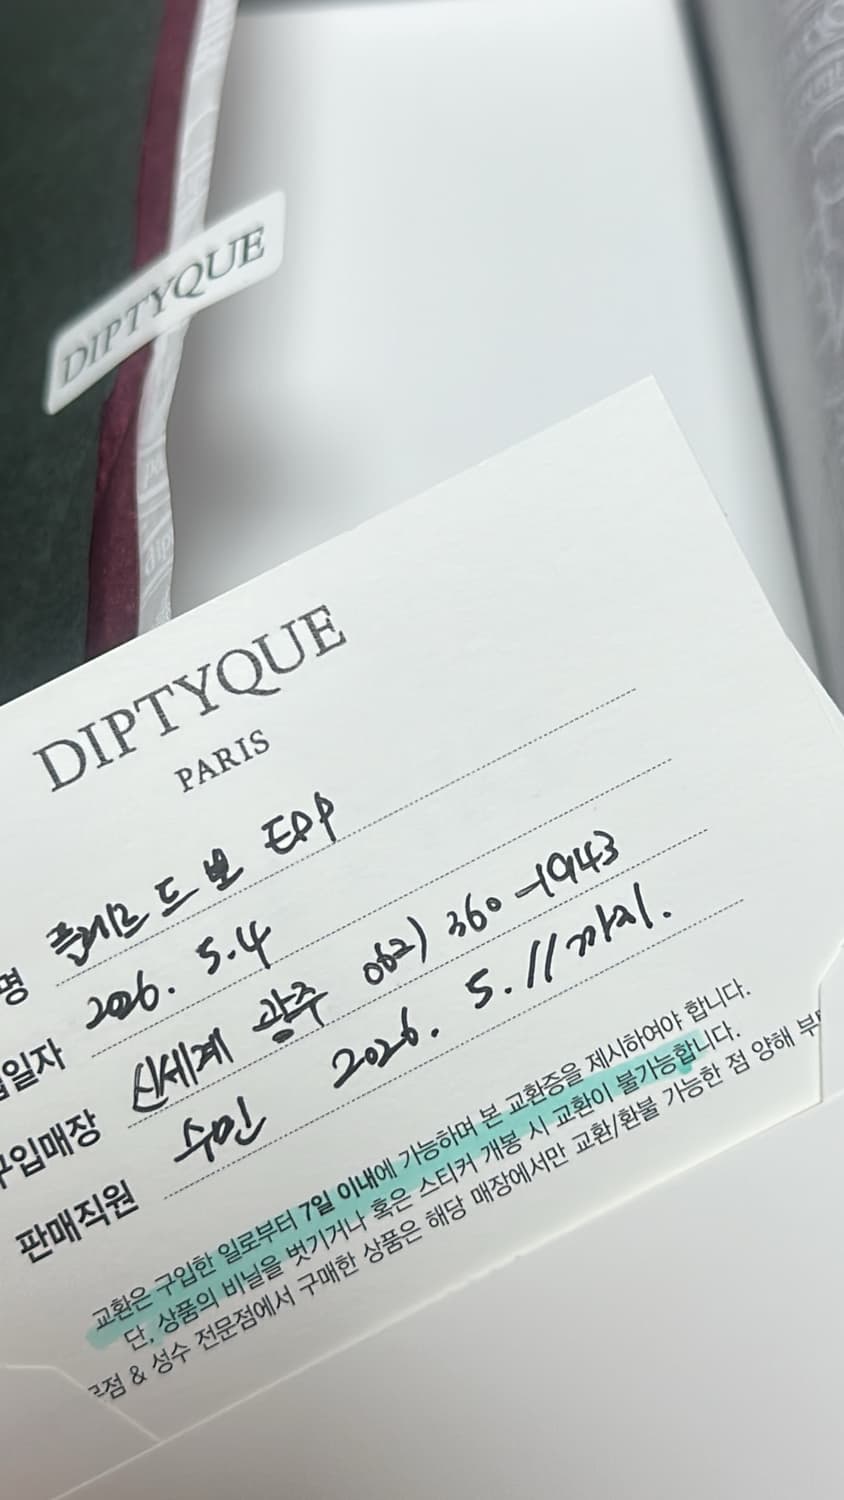 DIPTYQUE
DIPTYQUE
PARIS
명 플레르 드 뽀 EDP
일자 2026. 5.4
구입매장 신세계 광주 062) 360-1943
판매직원 수민 2026. 5. 11 까지.
교환은 구입한 일로부터 7일 이내에 가능하며 본 교환증을 제시하여야 합니다.
단, 상품의 비닐을 벗기거나 혹은 스티커 개봉 시 교환이 불가능합니다.
점 & 성수 전문점에서 구매한 상품은 해당 매장에서만 교환/환불 가능한 점 양해 부